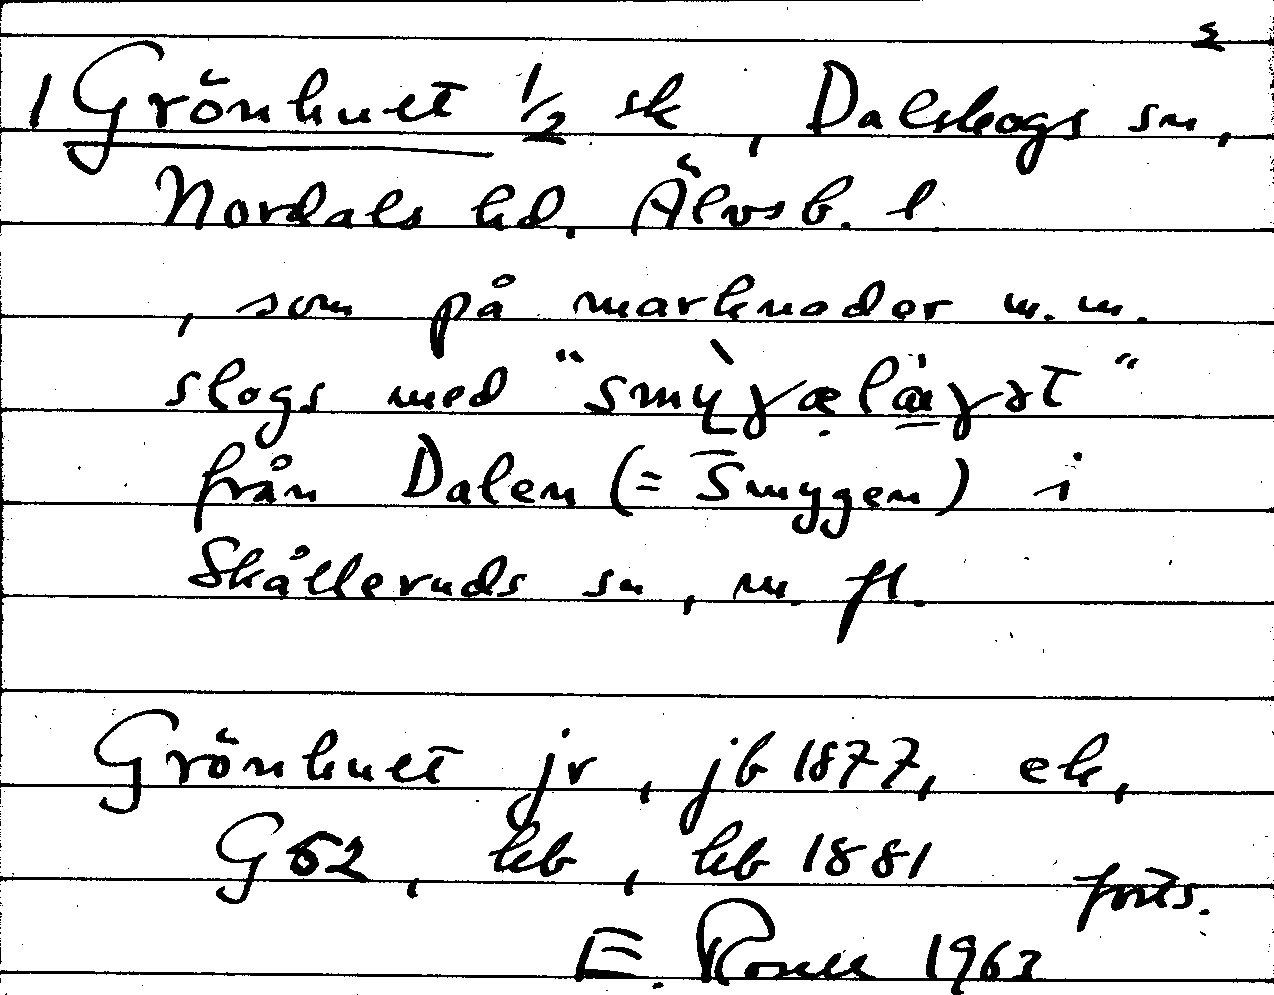 1 Grönhult 1/2 sk, Dalskogs sn,
Nordals hd. Älvsb. l
, som på marknader m.m.
slogs med "
från Dalen (= Smygen) i
Skålleruds sn, m. fl.
Grönhult jr, jb 1877, ek,
G 52, hb, hb 1881
forts.
E. 1963